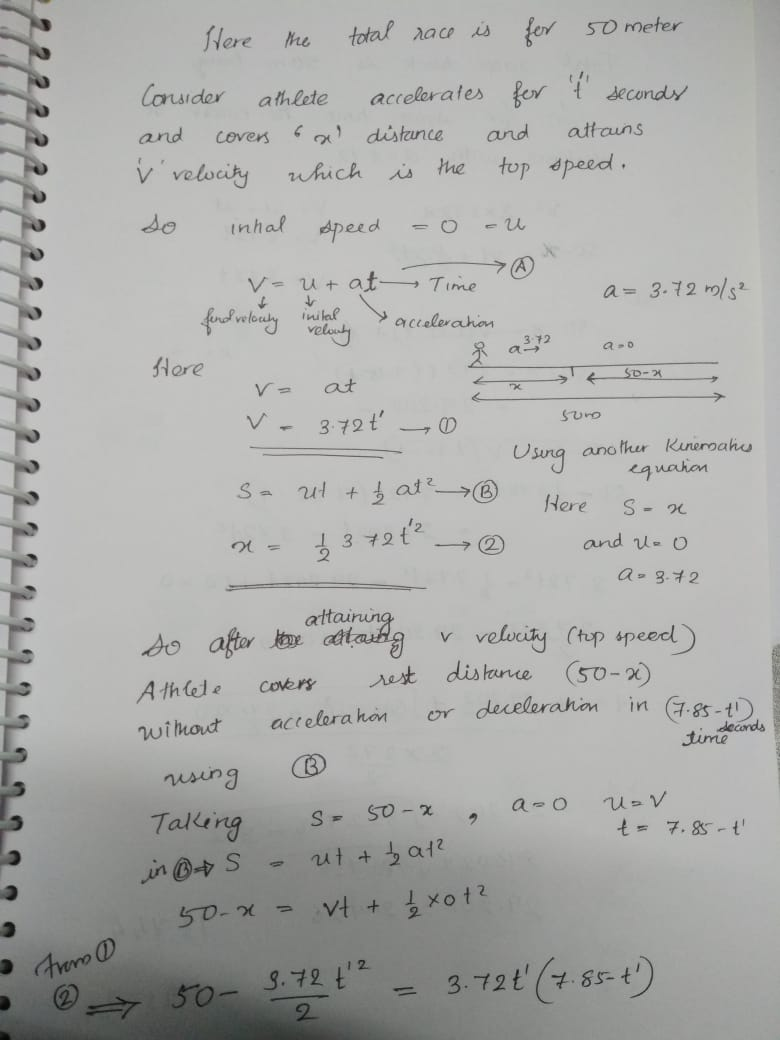 Here the total race is for 50 meter
Consider athlete accelerates for 't' seconds
and covers 'x' distance and attains
'v' velocity which is the top speed.
So inital speed = 0 = u
V = u + at → Time → Ⓐ
final velocity inital velocity acceleration
a = 3.72 m/s²
a 3.72 → a=0
x 50-x
50m
Here
V = at
V = 3.72t' → ①
Using another Kinematics equation
S = ut + ½ at² → Ⓑ
Here S = x
x = ½ 3 72t'² → ②
and u = 0
a = 3.72
So after attaining v velocity (top speed)
Athlete covers rest distance (50-x)
without acceleration or deceleration in (7.85-t') seconds time
using Ⓑ
Taking S = 50-x, a=0 u=V
t = 7.85-t'
in Ⓑ⇒ S = ut + ½ at²
50-x = Vt + ½ x 0 t²
From ①
② ⇒ 50 - 3.72 t'²/2 = 3.72t' (7.85-t')